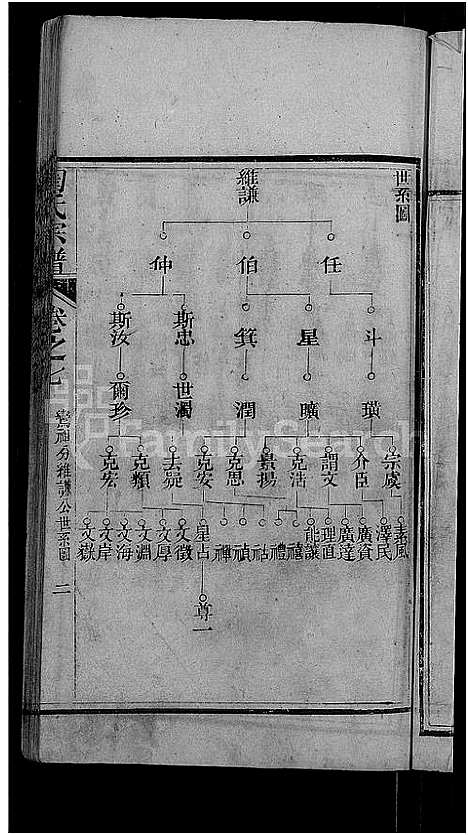 世系圖
維謙
任
伯
仲
斗
星
箕
斯忠
斯汝
璜
曠
潤
世濁
爾珍
宗虞
介臣
謂文
克浩
景揚
克思
克安
去疑
克頫
克宏
素風
澤民
廣貧
廣達
理直
能識
禧
禮
祜
禎
禪
星占
文徵
文厚
文淵
文海
文岸
文嶽
尊一
氏宗譜
卷之七
分維謙公世系圖
二
FamilySearch